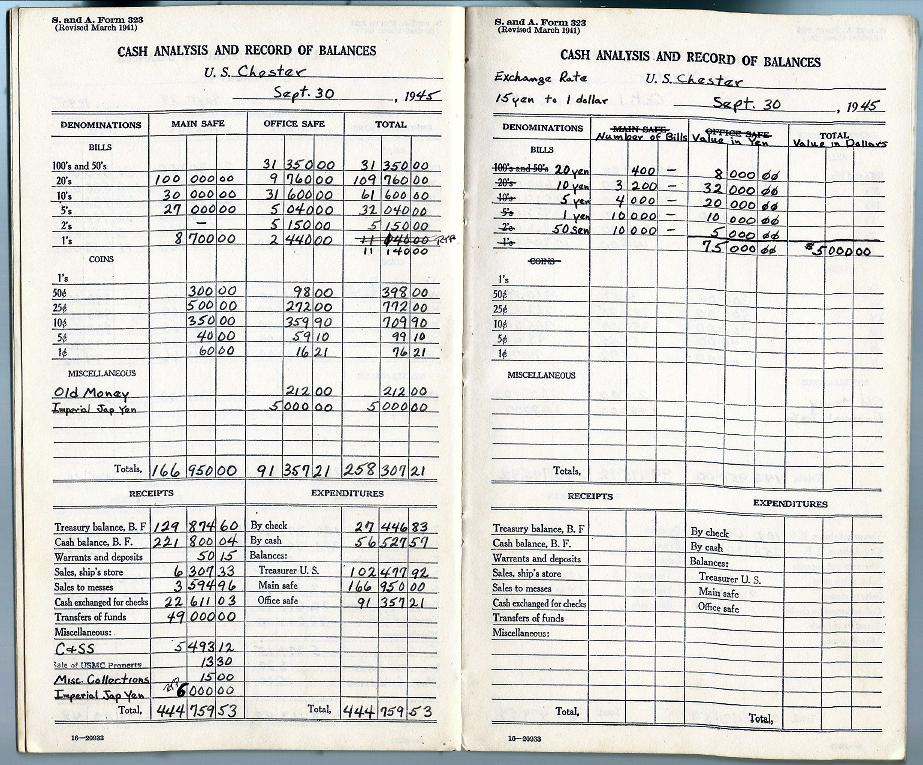 S. and A. Form 323
(Revised March 1941)
CASH ANALYSIS AND RECORD OF BALANCES
U. S. Chester
Sept. 30 , 1945
DENOMINATIONS MAIN SAFE OFFICE SAFE TOTAL
BILLS
100's and 50's 31 350 00 31 350 00
20's 100 000 00 9 760 00 109 760 00
10's 30 000 00 31 600 00 61 600 00
5's 27 000 00 5 040 00 32 040 00
2's — 5 150 00 5 150 00
1's 8 700 00 2 440 00
11 140 00
COINS
1's
50¢ 300 00 98 00 398 00
25¢ 500 00 272 00 772 00
10¢ 350 00 359 90 709 90
5¢ 40 00 59 10 99 10
1¢ 60 00 16 21 76 21
MISCELLANEOUS
Old Money 212 00 212 00
Imperial Jap Yen 5 000 00 5 000 00
Totals, 166 950 00 91 357 21 258 307 21
RECEIPTS EXPENDITURES
Treasury balance, B. F 129 874 60 By check 27 446 83
Cash balance, B. F. 221 800 04 By cash 56 527 57
Warrants and deposits 50 15 Balances:
Sales, ship's store 6 307 33 Treasurer U. S. 102 477 92
Sales to messes 3 594 96 Main safe 166 950 00
Cash exchanged for checks 22 611 03 Office safe 91 357 21
Transfers of funds 49 000 00
Miscellaneous:
C+SS 5 493 12
Sale of USMC Property 13 30
Misc. Collections 15 00
Imperial Jap Yen 6 000 00
Total, 444 759 53 Total, 444 759 53
16—20933
S. and A. Form 323
(Revised March 1941)
CASH ANALYSIS AND RECORD OF BALANCES
Exchange Rate U. S. Chester
15 yen to 1 dollar Sept. 30 , 1945
DENOMINATIONS MAIN SAFE OFFICE SAFE TOTAL
Number of Bills Value in Yen Value in Dollars
BILLS
100's and 50's 20 yen 400 — 8 000 00
20's 10 yen 3 200 — 32 000 00
10's 5 yen 4 000 — 20 000 00
5's 1 yen 10 000 — 10 000 00
2's 50 sen 10 000 — 5 000 00
1's 75 000 00 $5 000 00
COINS
1's
50¢
25¢
10¢
5¢
1¢
MISCELLANEOUS
Totals,
RECEIPTS EXPENDITURES
Treasury balance, B. F By check
Cash balance, B. F. By cash
Warrants and deposits Balances:
Sales, ship's store Treasurer U. S.
Sales to messes Main safe
Cash exchanged for checks Office safe
Transfers of funds
Miscellaneous:
Total, Total,
16—20933